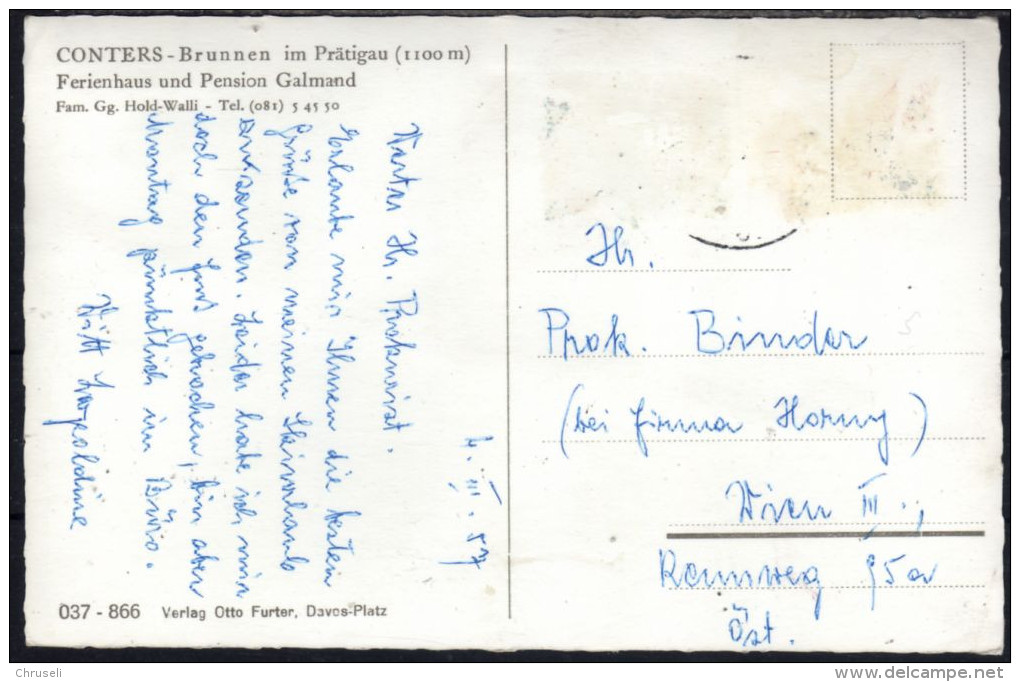 CONTERS-Brunnen im Prätigau (1100 m)
Ferienhaus und Pension Galmand
Fam. Gg. Hold-Walli - Tel. (081) 5 45 50
4. II. 57
Werter Hr. Prokurist.
Erlaube mir Ihnen die besten
Grüße von meinem Skiurlaub
zu senden. Leider habe ich mir
doch den Fuß gebrochen, bin aber
Montag pünktlich im Büro.
Witt Leopoldine
Hr.
Prok. Binder
(bei Firma Horny)
Wien III.,
Rennweg 95a
Öst.
037 - 866 Verlag Otto Furter, Davos-Platz
Chruseli
www.delcampe.net